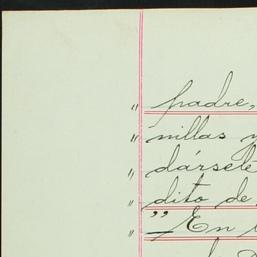 " padre,
" nillas y
" dársele
" dito de
" " En